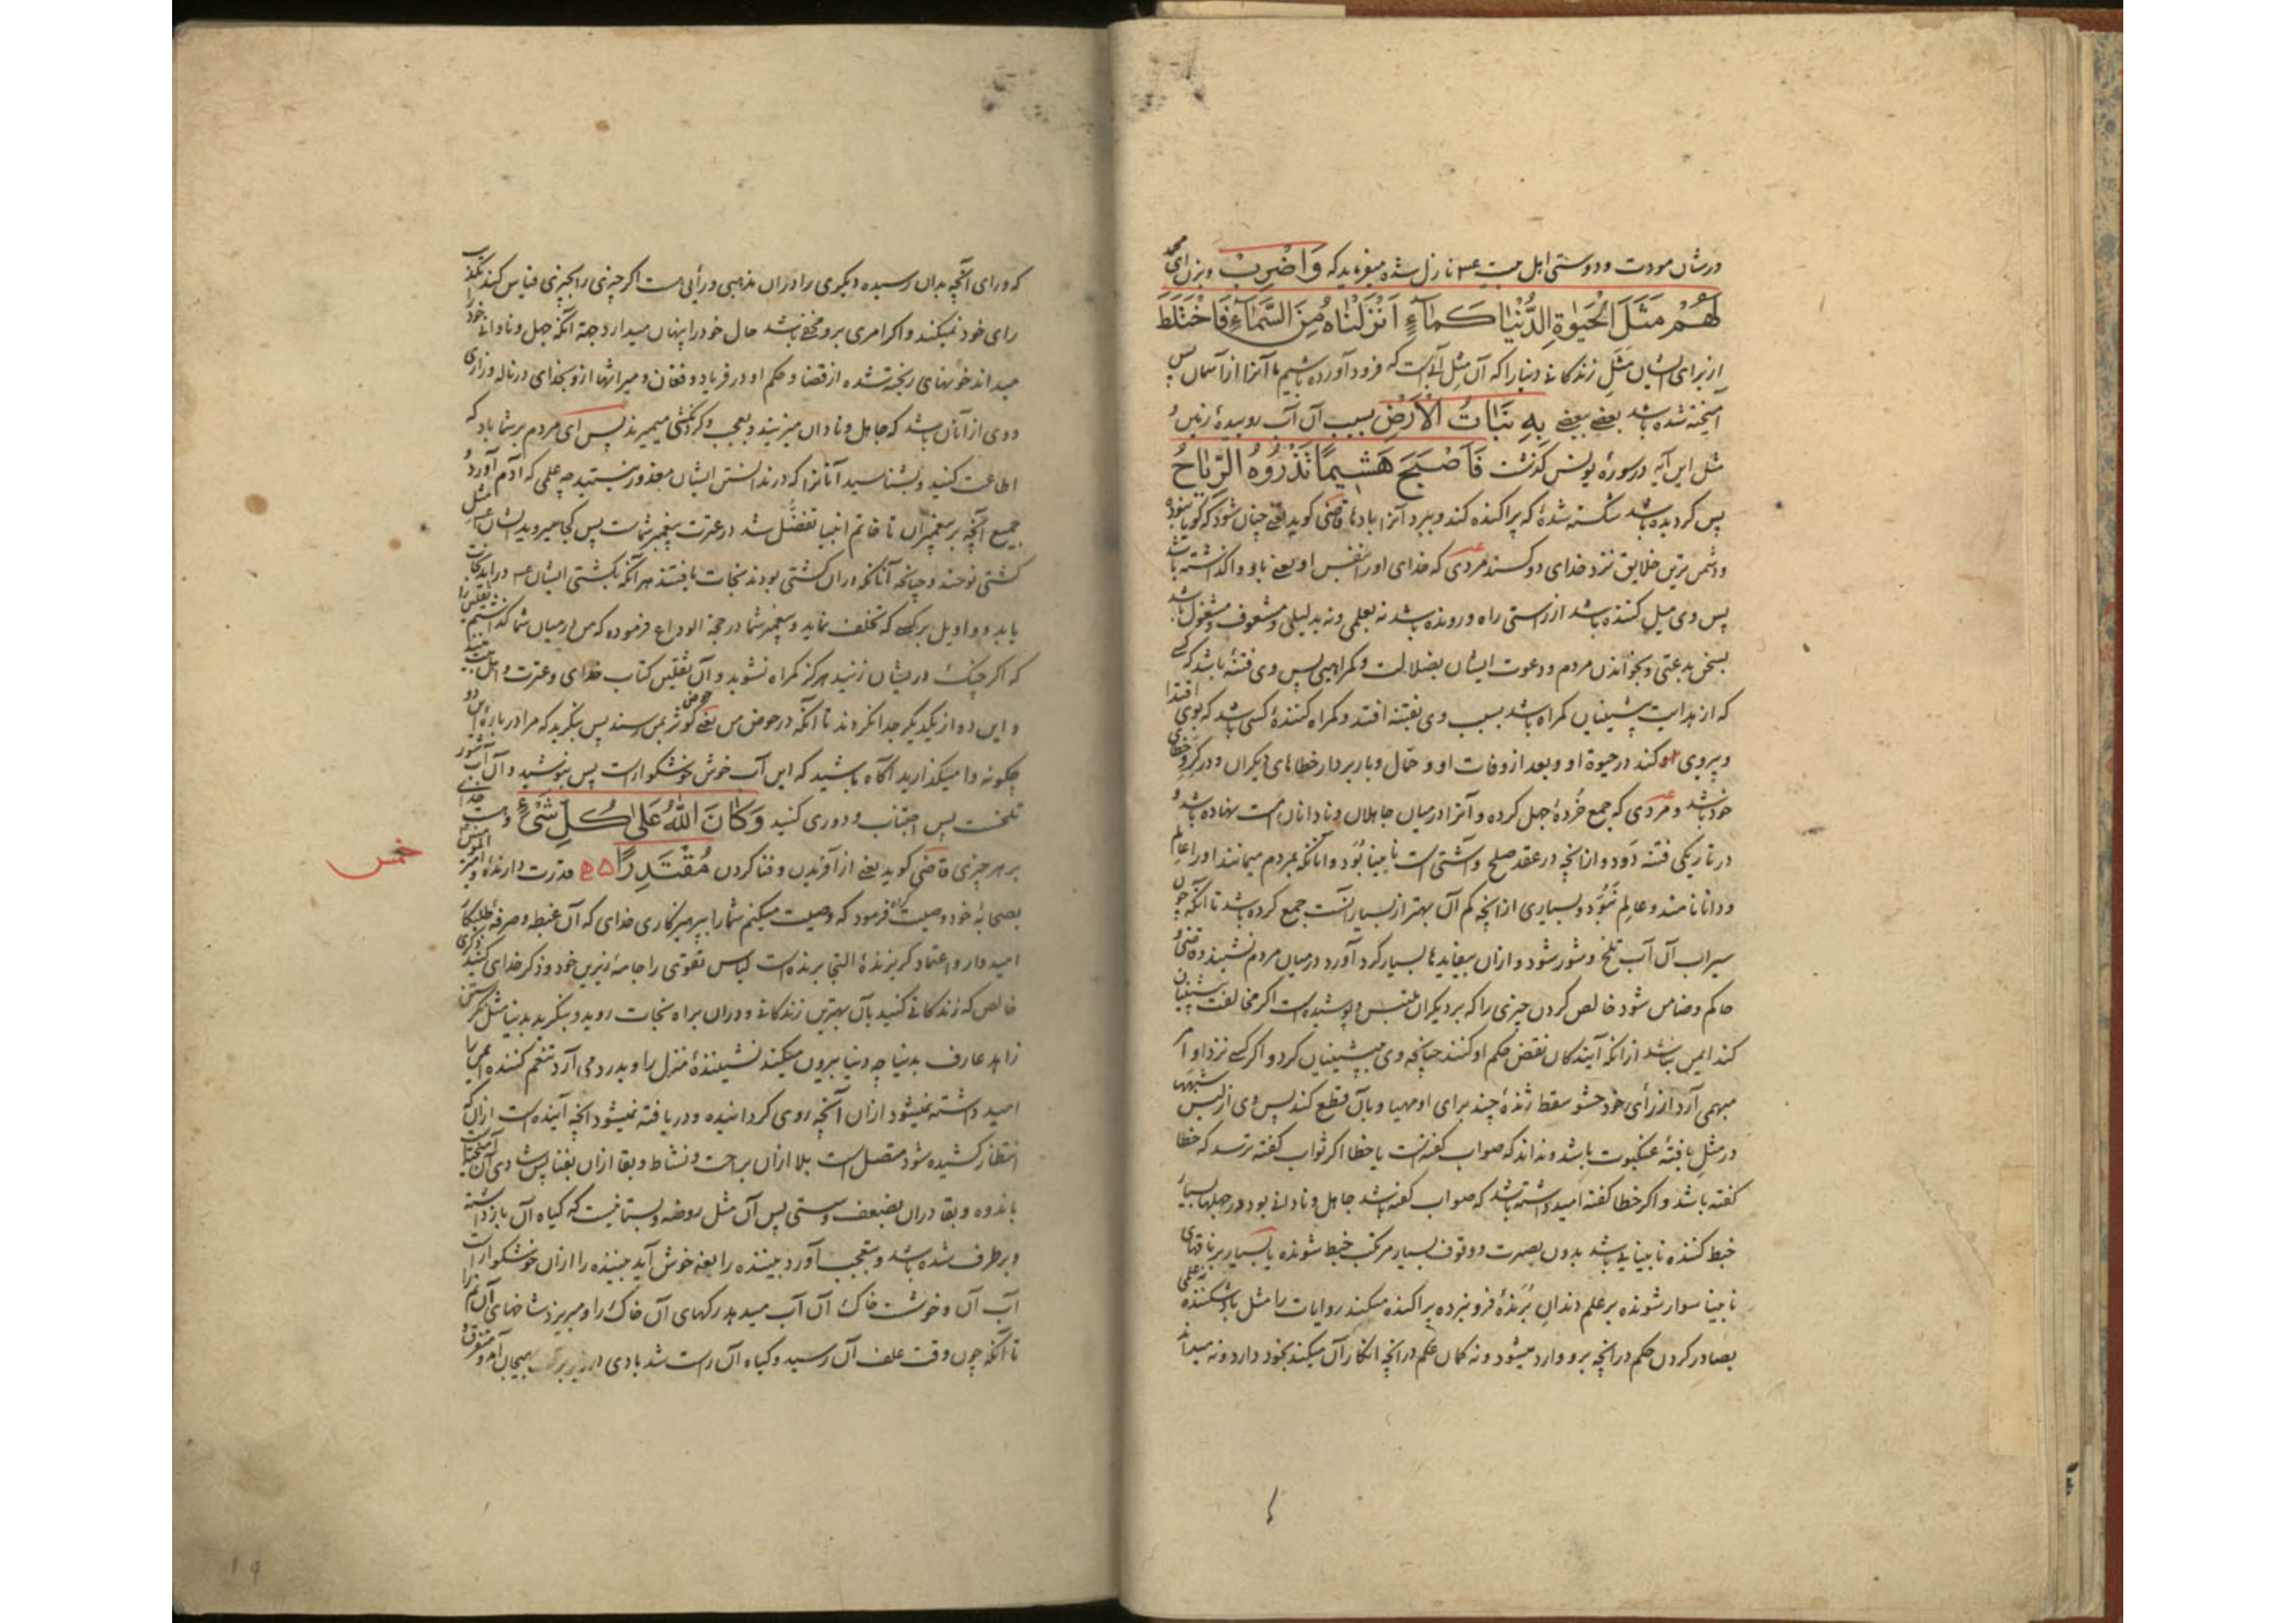 در شان مودت و دوستی اهل بیت ع م نازل شده میفرماید که وَاضْرِبْ و بزن ای محمد
لَهُمْ مَثَلَ الْحَیٰوةِ الدُّنْیَا کَمَاۤءٍ اَنْزَلْنَاهُ مِنَ السَّمَاۤءِ فَاخْتَلَطَ
از برای ایشان مَثَلِ زندکانی دنیا را که آن مثل آبیست که فرود آورده باشیم ما آنرا از آسمان پس
آمیخته شده باشد بعضے ببعضے بِهِ نَبَاتُ الْاَرْضِ بسبب آن آب روییدهٔ زمین و
مثل این آیه در سورهٔ یونس کذشت فَاَصْبَحَ هَشِیمًا تَذْرُوهُ الرِّیَاحُ
پس کردیده باشد شکسته شدهٔ که پراکنده کند و ببرد آنرا بادها قاضی کوید یعنے چنان شود که کویا نبوده
و دشمن ترین خلایق نزد خدای دو کسند مردی که خدای او را بنفس او یعنے باو واکذاشته باشد
پس وی میل کننده باشد از راستی راه و رونده باشد نه بعلمی و نه بدلیلی و مشعوف و مشغول باشد
بسخن بدعتی و بخواندن مردم و دعوت ایشان بضلالت و کمراهیی پس وی فتنهٔ باشد کسے
که از هدایت پیشینیان کمراه باشد بسبب وی بفتنه افتد و کمراه کنندهٔ کسی باشد که بوی اقتدا
و پیروی او کند در حیوة او و بعد از وفات او و حمّال و باربردار خطاهای دیکران و در کرو خطای
خود باشد و مردی که جمع خُردهٔ جهل کرده و آنرا در میان جاهلان و نادانان امت نهاده باشد و
در تاریکی فتنه دَوَد و از انچه در عقد صلح و آشتی است نابینا بُوَد و انانکه بمردم میمانند او را عالم
و دانا نامند و عالم نبُوَد و بسیاری از انچه کم آن بهتر از بسیار آنست جمع کرده باشد تا آنکه چون
سیراب آن آب تلخ و شور شود و از ان بیفایدها بسیار کرد آورد در میان مردم نشیند قاضی و
حاکم و ضامن شود خالص کردن چیزی را که بر دیکران ملتبس و پوشیده است اکر مخالفت پیشینیان
کند ایمن نباشد از انکه آیندکان نقض حکم او کنند چنانچه وی به پیشینیان کرد و اکر کسے نزد او امر
مبهمی آرد از رأی خود حشو سقط ژندهٔ چند برای او مهیا و بآن قطع کند پس وی از لبس شبهها
در مثل بافتهٔ عنکبوت باشد و نداند که صواب کفته است یا خطا اکر ثواب کفته ترسد که خطا
کفته باشد و اکر خطا کفته امید داشته باشد که صواب کفته باشد جاهل و نادانی بود در جهلها بسیار
خبط کننده نابینایی باشد بدون بصیرت و وقوف بسیار مرتکب خبط شونده یا بسیار بر ناقهای
نابینا سوار شونده بر علم دندانِ بُرّندهٔ فرو نبرده پراکنده میکند روایات را مثل باد شکننده علمی
بصادر کردن حکم در انچه برو وارد میشود و نه کمان علم در انچه انکار آن میکند بخود دارد و نه میداند
که ورای آنچه بدان رسیده دیکری را در ان مذهبی و رأیی هست اکر چیزی را بچیزی قیاس کند تکذیب
رای خود نمیکند و اکر امری برو مخفے باشد حال خود را پنهان میدارد جهة آنکه جهل و نادانی خود را
میداند خونهای ریخته شده از قضا و حکم او در فریاد و فغان و میراثها از وی بخدای در ناله و زاری
و وی از آنان باشد که جاهل و نادان میزیند و بعجب و کردنکشی میمیرند پس ای مردم بر شما باد که
اطاعت کنید و بشناسید آنانرا که در ندانستن ایشان معذور نیستید چه علمی که آدم آورد و
جمیع آنچه بر پیغمبران تا خاتم انبیا تفضّل شد در عترت پیغمبر شماست پس کجا میروید ایشان مثل
کشتی نوحند و چنانچه آنانکه در ان کشتی بودند نجات یافتند هر آنکه بکشتی ایشان ع م در اید نجات
یابد و واویل بر کسے که تخلف نماید و پیغمبر شما در حجة الوداع فرموده که من در میان شما کذاشتیم ثقلین را
که اکر چنک در ایشان زنید هرکز کمراه نشوید و آن ثقلین کتاب خدای و عترت و اهل بیت منند
و این دو از یکدیکر جدا نکردند تا آنکه در حوض من یعنے حوض کوثر بمن رسند پس بنکرید که مرا در بارهٔ این دو
چکونه وا میکذارید آکاه باشید که این آب خوش خوشکوار است پس بنوشید و آن آب شور
تلخست پس اجتناب و دوری کنید وَکَانَ اللّٰهُ عَلٰی کُلِّ شَیْءٍ و هست خدای
بر هر چیزی قاضی کوید یعنے از آفریدن و فنا کردن مُقْتَدِرًا قدرت دارنده و امیر المومنین
بصحابهٔ خود وصیت فرمود که وصیت میکنم شما را بپرهیزکاری خدای که آن غبطه و صرفهٔ طلبکار
امیدوار و اعتماد کریزندهٔ التجا برنده است لباس تقوی را جامهٔ زیرین خود و ذکر خدای کنید ذکری
خالص که زندکانی کنید بآن بهترین زندکانی و در ان براه نجات روید و بنکرید بدنیا مثل نکریستن
زاهد عارف بدنیا چه دنیا بیرون میکند نشینندهٔ منزل را و بدرد می آرد تنعم کننده ایمن را
امید داشته نمیشود از ان آنچه روی کردانیده و دریافته نمیشود انچه آینده است از ان که
انتظار کشیده شود متصل است بلا از ان براحت و نشاط و بقا از ان بفنا پس شادی آن آمیخته است
باندوه و بقا در ان بضعف و سستی پس آن مثل روضه و بستانیست که کیاه آن بازداشته
و برطرف شده باشد و بتعجب آورد بیننده را یعنے خوش آید بیننده را از ان خوشکوار است
آب آن و خوشست خاک آن آب میدهد رکهای آن خاک را و میریزد شاخهای آن نم را
تا آنکه چون وقت علف آن رسید و کیاه آن راست شد بادی هیجان آمد و متفرق
خمس
۱۹